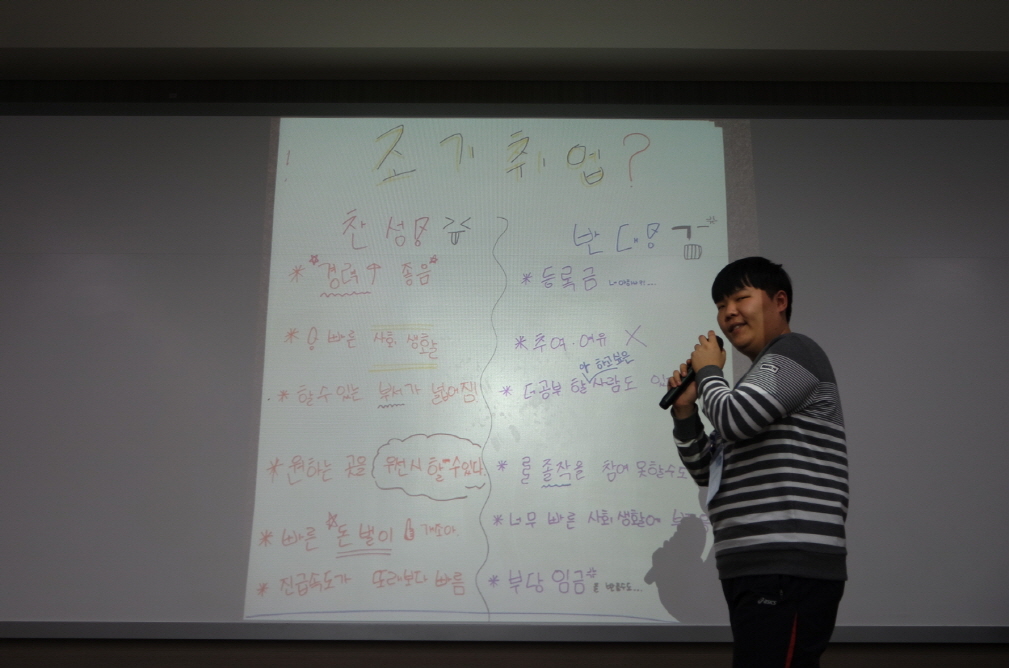 조기취업?
찬성
* 경력↑ 좋음
* 빠른 사회 생활
* 할 수 있는 부서가 넓어짐!
* 원하는 곳을 우선시 할 수 있다.
* 빠른 돈 벌이
* 진급속도가 또래보다 빠름
반대
* 등록금
* 추억·여유 X
* 더 공부 할 사람도
하고싶은
* 졸작을 참여 못할수도
* 너무 빠른 사회생활에
* 부당 임금
asics